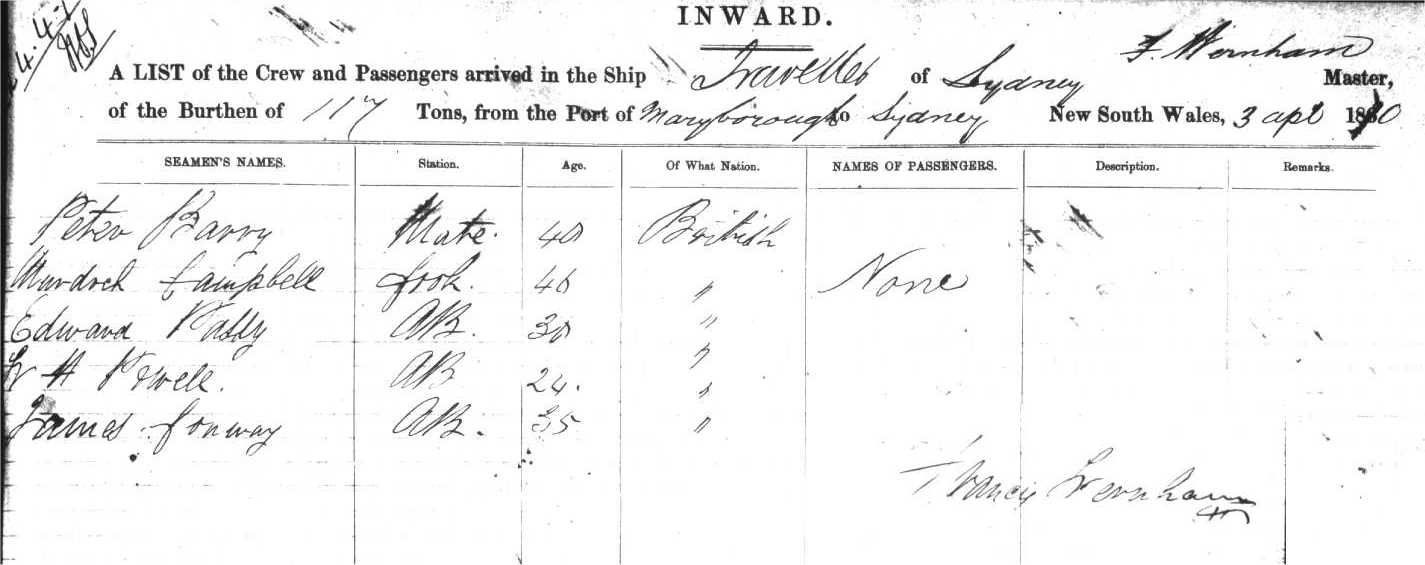 INWARD.
F. Wernham
A LIST of the Crew and Passengers arrived in the Ship Traveller of Sydney Master,
of the Burthen of 117 Tons, from the Port of Maryborough to Sydney New South Wales, 3 apl 1880
SEAMEN'S NAMES. Station. Age. Of What Nation. NAMES OF PASSENGERS. Description. Remarks.
Peter Barry Mate. 40 British
Murdoch Campbell Cook. 40 " None
Edward AB. 30 "
W H Powell. AB 24. " "
James Conway AB. 35 "
Francis Wernham